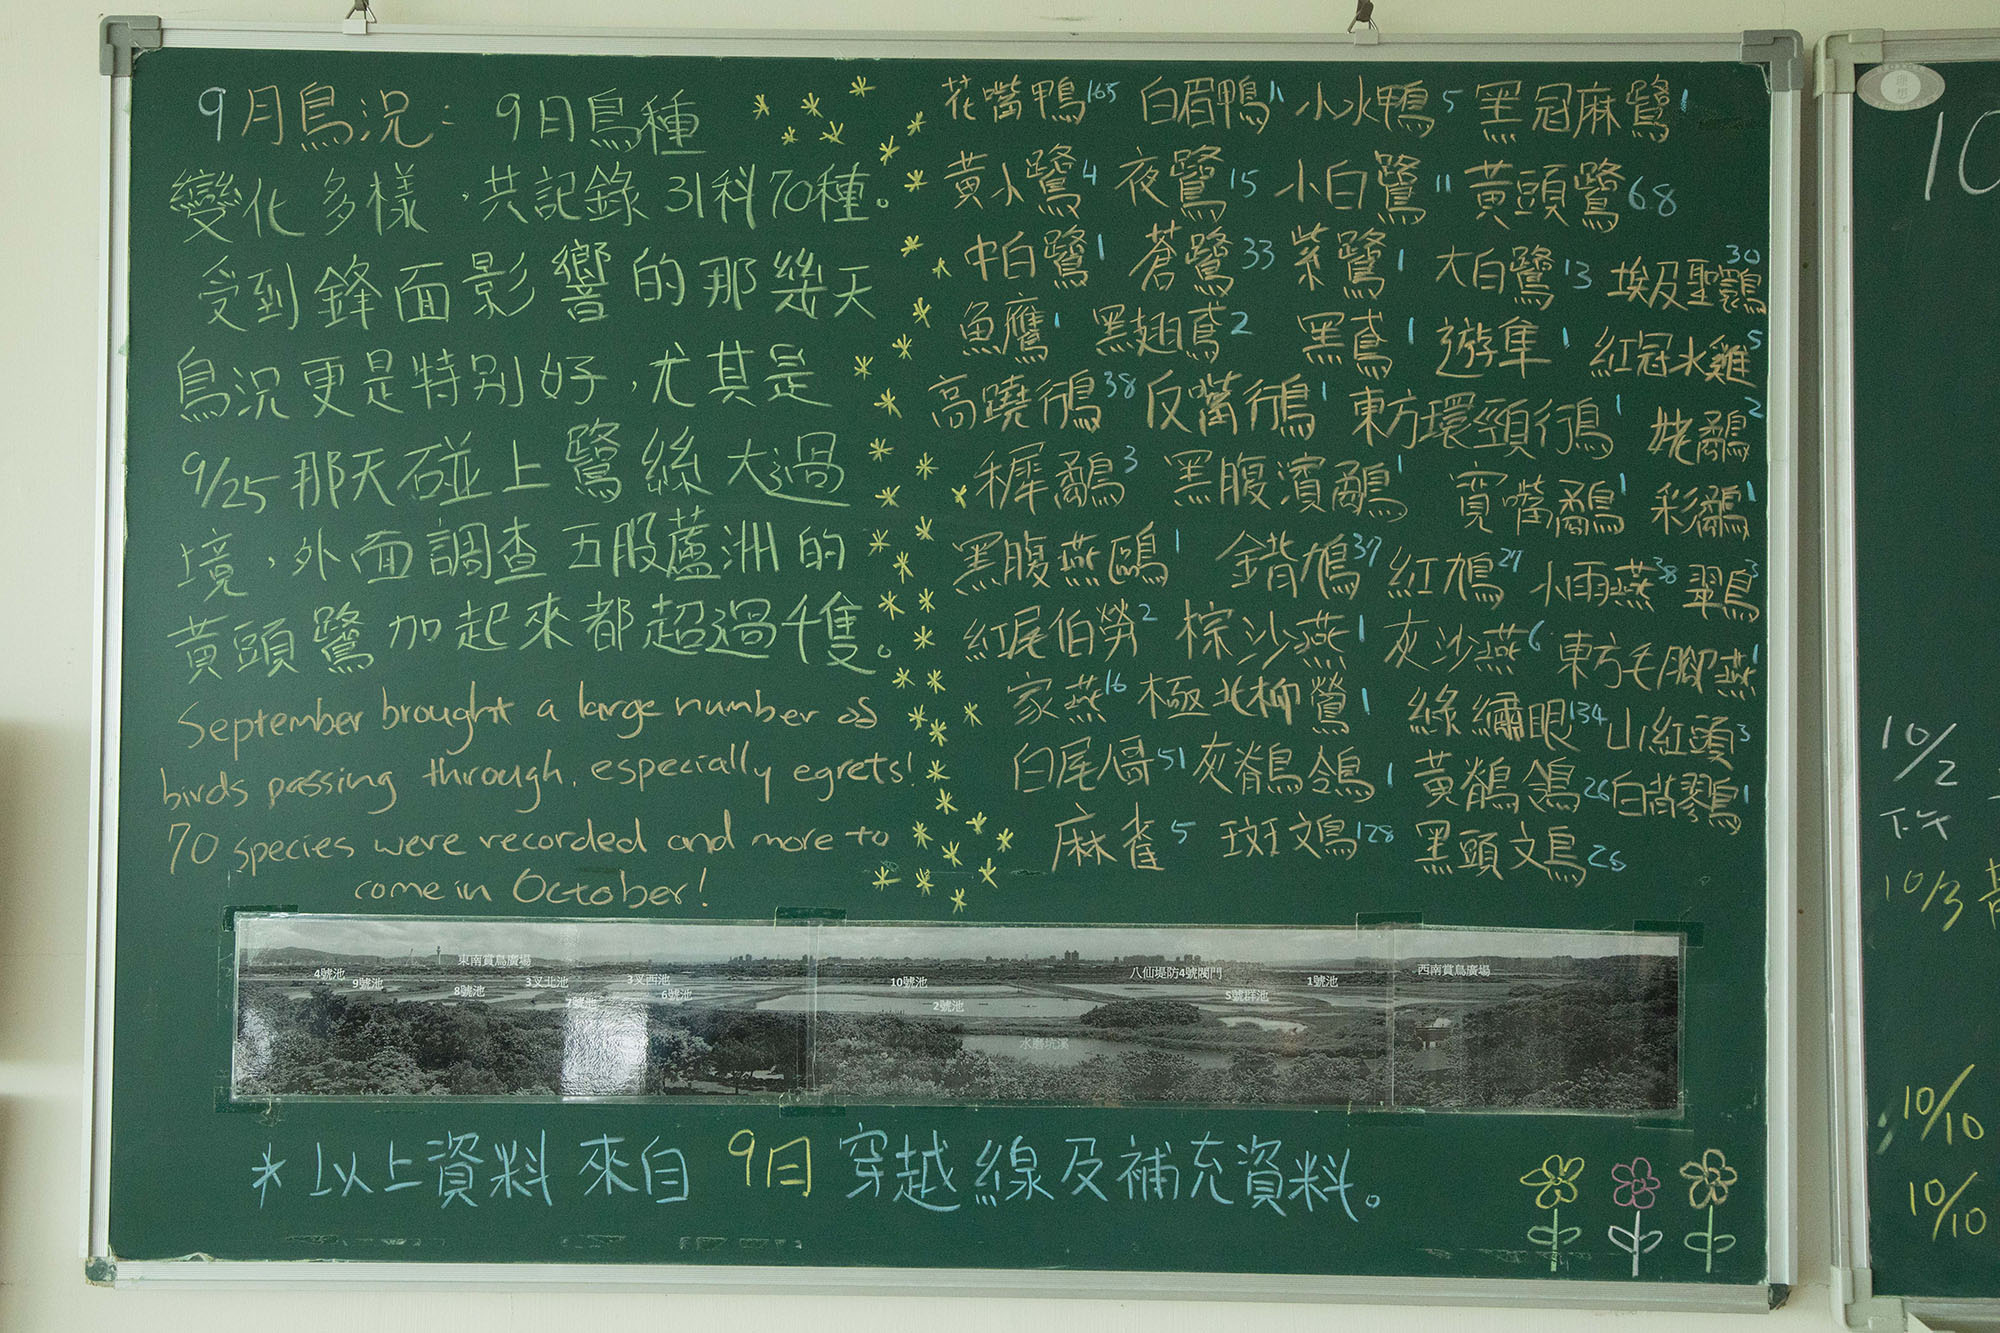 9月鳥況：9月鳥種
變化多樣，共記錄31科70種。
受到鋒面影響的那幾天
鳥況更是特別好，尤其是
9/25那天碰上鷺絲大過
境，外面調查五股蘆洲的
黃頭鷺加起來都超過千隻。
September brought a large number of
birds passing through, especially egrets!
70 species were recorded and more to
come in October!
花嘴鴨165 白眉鴨11 小水鴨5 黑冠麻鷺1
黃小鷺4 夜鷺15 小白鷺11 黃頭鷺68
中白鷺1 蒼鷺33 紫鷺1 大白鷺13 埃及聖鹮30
魚鷹1 黑翅鳶2 黑鳶1 遊隼1 紅冠水雞5
高蹺行鳥38 反嘴行鳥1 東方環頸行鳥1 姥鷸2
稺鷸3 黑腹濱鷸1 寬嘴鷸1 彩鷸1
黑腹燕鷗1 金背鳩37 紅鳩27 小雨燕38 翠鳥3
紅尾伯勞2 棕沙燕1 灰沙燕6 東方毛腳燕1
家燕16 極北柳鶯1 綠繡眼134 山紅頭3
白尾八哥51 灰鶺鴒1 黃鶺鴒26 白背鷚1
麻雀5 斑文鳥128 黑頭文鳥26
東南賞鳥廣場
4號池
9號池
8號池
3叉北池
7號池
3叉西池
6號池
10號池
2號池
水磨坑溪
八仙堤防4號閘門
5號群池
1號池
西南賞鳥廣場
*以上資料來自9月穿越線及補充資料。
10
10/2
10/3
10/10
10/10